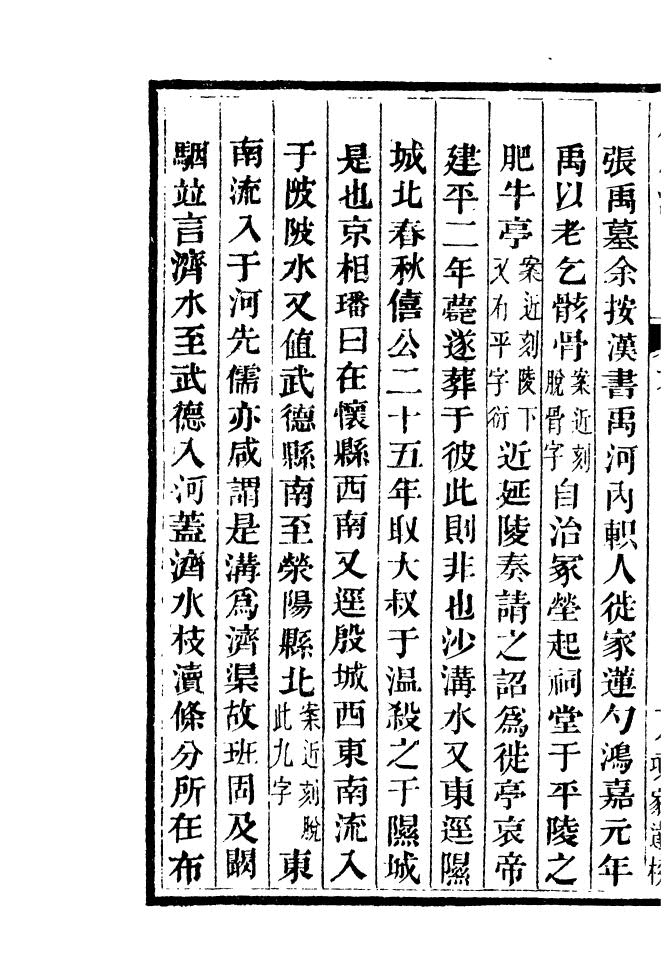 張禹墓余按漢書禹河內軹人徙家蓮勺鴻嘉元年
禹以老乞骸骨案近刻脫骨字自治冢塋起祠堂于平陵之
肥牛亭案近刻陵下又有平字衍近延陵奏請之詔為徙亭哀帝
建平二年薨遂葬于彼此則非也沙溝水又東逕隰
城北春秋僖公二十五年取大叔于温殺之于隰城
是也京相璠曰在懷縣西南又逕殷城西東南流入
于陂陂水又值武德縣南至滎陽縣北案近刻脫此九字東
南流入于河先儒亦咸謂是溝爲濟渠故班固及闞
駰竝言濟水至武德入河蓋濟水枝瀆條分所在布